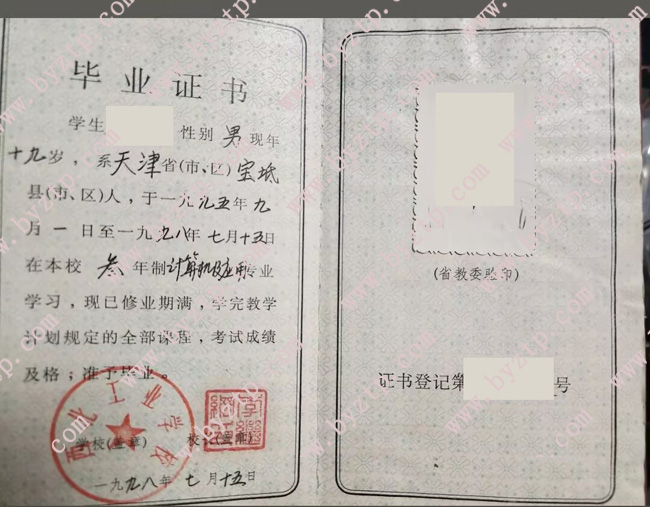 毕业证书
学生 性别 男 现年
十九岁，系天津省(市、区)宝坻
县(市、区)人，于一九九五年九
月一日至一九九八年七月十五日
在本校 叁 年制计算机及应用专业
学习，现已修业期满，学完教学
计划规定的全部课程，考试成绩
及格；准予毕业。
工业学校
学校(盖章) 校长
一九九八年七月十五日
(省教委验印)
证书登记第 号
www.byztp.com